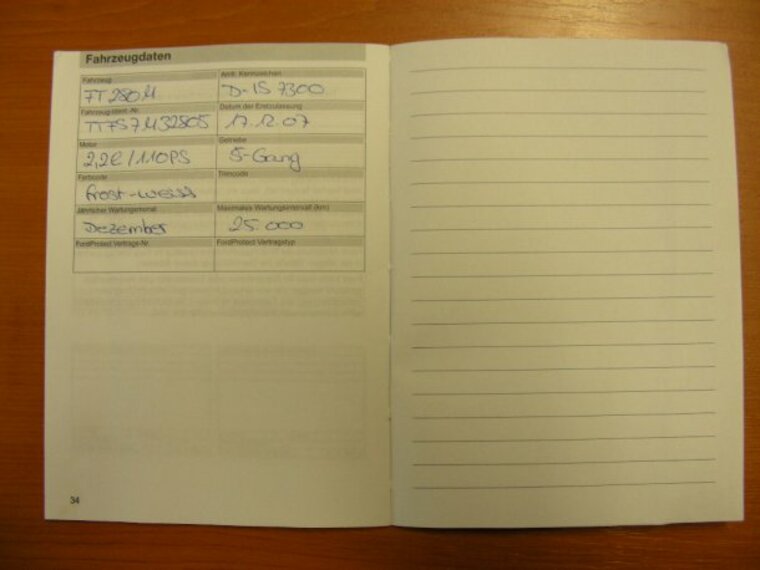 Fahrzeugdaten
Fahrzeug
Amtl. Kennzeichen
FT 280 M
D-IS 7300
Fahrzeug-Ident.-Nr.
Datum der Erstzulassung
TTFS7M32805
17.12.07
Motor
Getriebe
2,2l/110PS
5-Gang
Farbcode
Trimcode
frost-weiss
Jährlicher Wartungsmonat
Maximales Wartungsintervall (km)
Dezember
25.000
FordProtect Vertrags-Nr.
FordProtect Vertragstyp
34